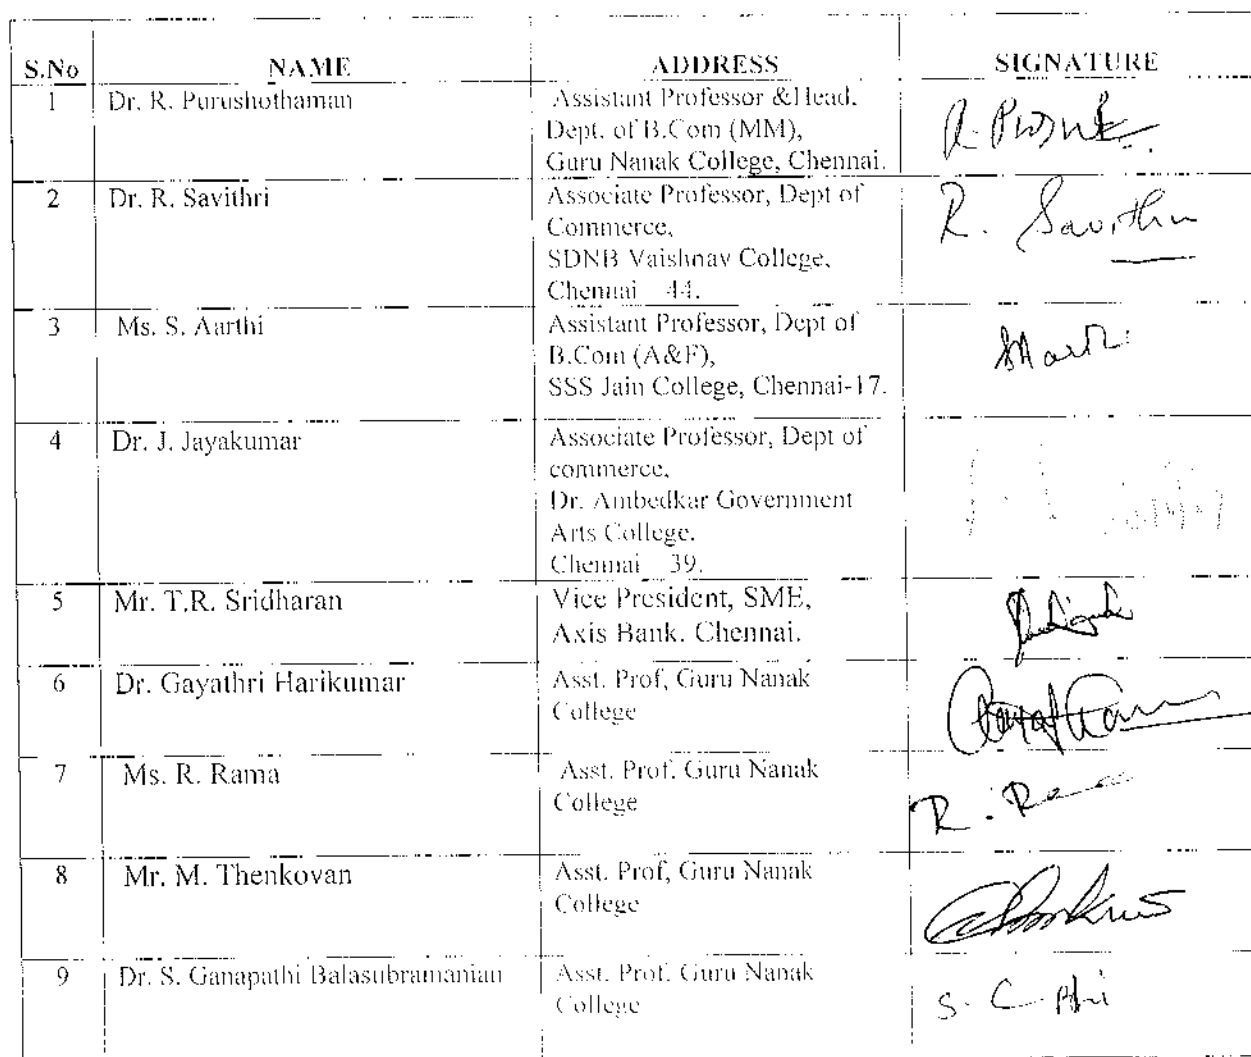 S.No NAME ADDRESS SIGNATURE
1 Dr. R. Purushothaman Assistant Professor & Head,
Dept. of B.Com (MM),
Guru Nanak College, Chennai.
2 Dr. R. Savithri Associate Professor, Dept of R. Savithri
Commerce,
SDNB Vaishnav College,
Chennai 44.
3 Ms. S. Aarthi Assistant Professor, Dept of
B.Com (A&F),
SSS Jain College, Chennai-17.
4 Dr. J. Jayakumar Associate Professor, Dept of
commerce,
Dr. Ambedkar Government
Arts College,
Chennai 39.
5 Mr. T.R. Sridharan Vice President, SME,
Axis Bank, Chennai.
6 Dr. Gayathri Harikumar Asst. Prof, Guru Nanak
College
7 Ms. R. Rama Asst. Prof. Guru Nanak R. Rama
College
8 Mr. M. Thenkovan Asst. Prof, Guru Nanak
College
9 Dr. S. Ganapathi Balasubramanian Asst. Prof. Guru Nanak
College